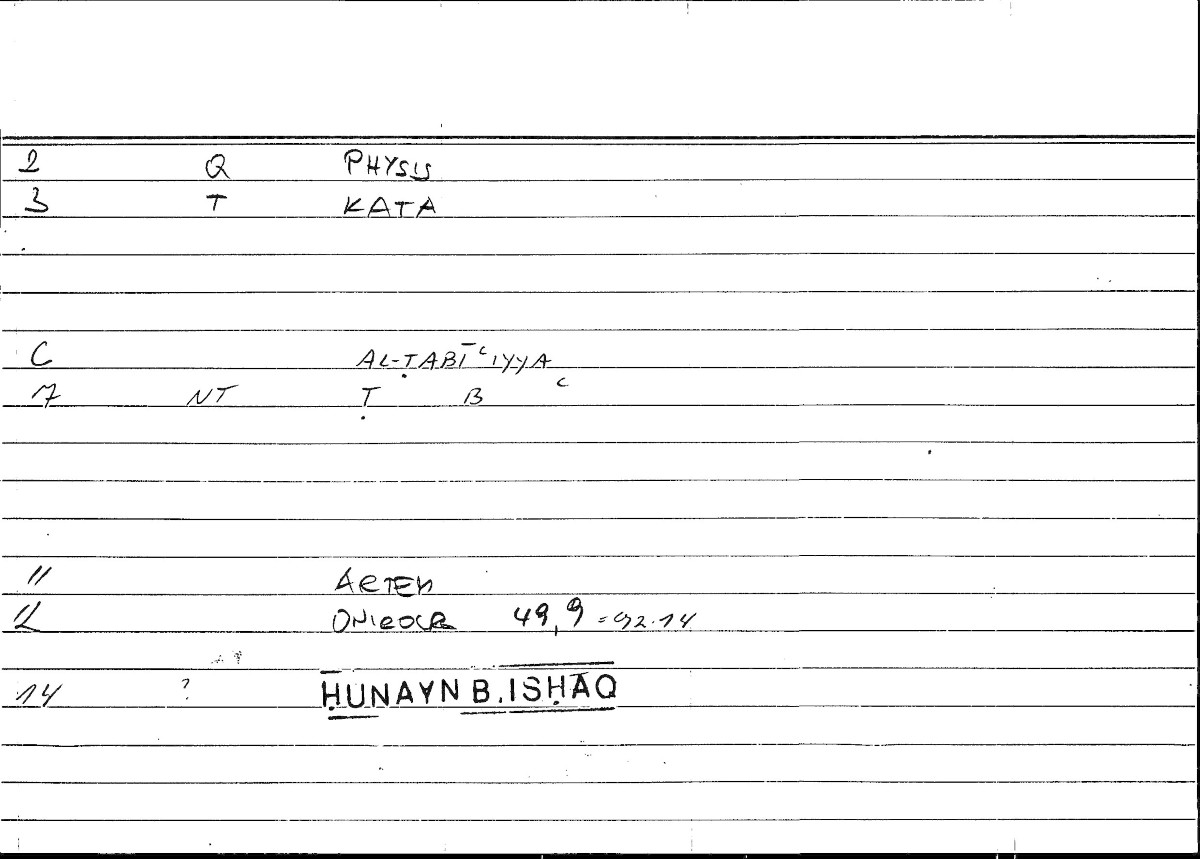 2 Q PHYSIS
3 T KATA
C AL-ṬABĪʿIYYA
7 NT Ṭ B ʿ
11 ARTEM
12 ONIROCR 49,9 = 92.14
14 ? ḤUNAYN B. ISḤĀQ